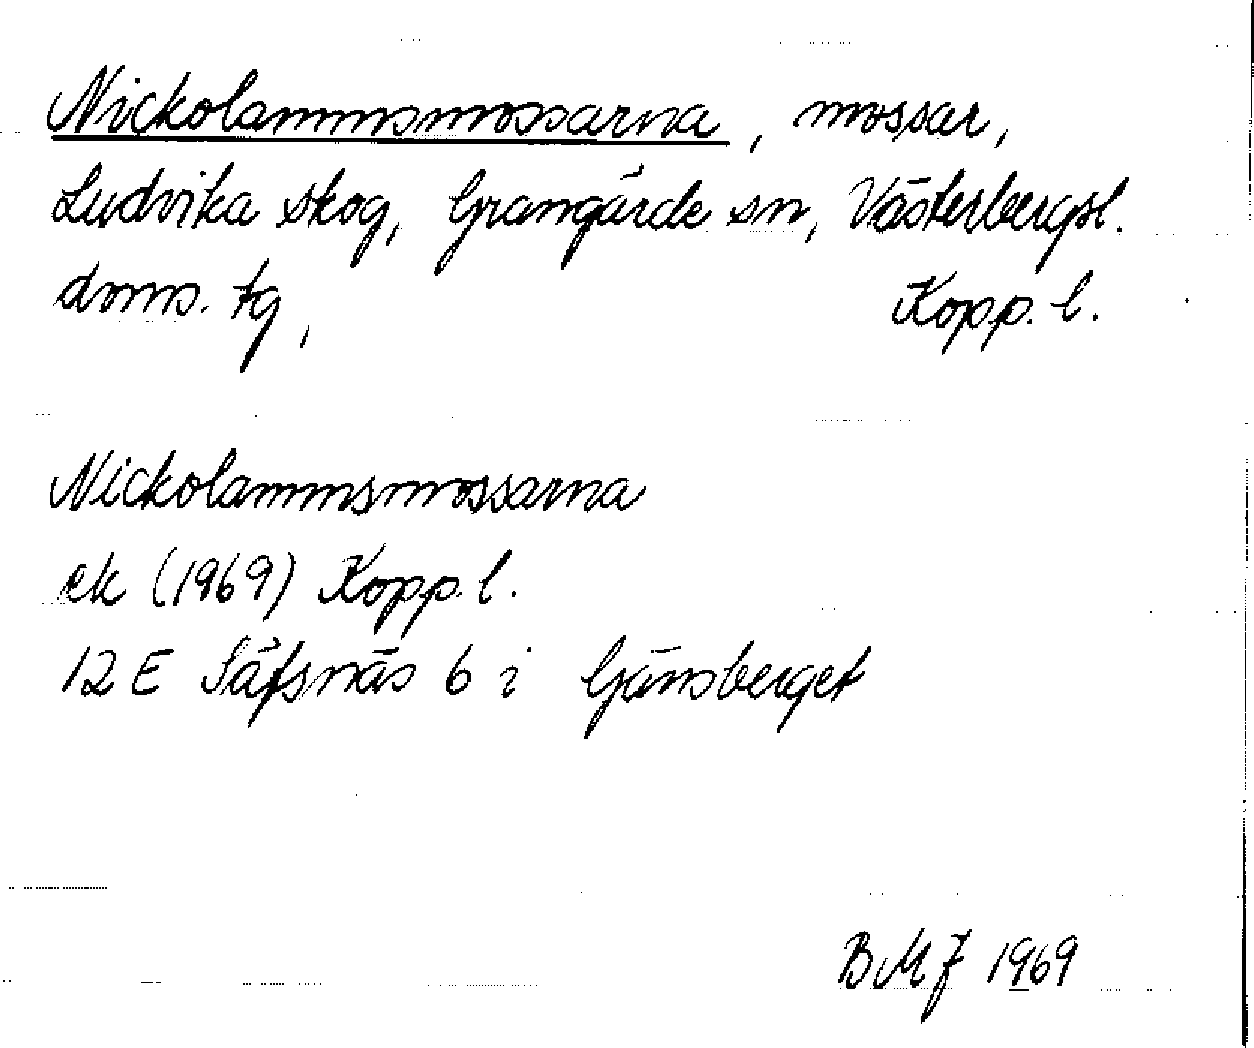 Nickolammsmossarna, mossar,
Ludvika skog, Grangärde sn, Västerbergsl.
doms. tg, Kopp. l.
Nickolammsmossarna
ek (1969) Kopp. l.
12 E Säfsnäs 6 i Gänsberget
BMJ 1969